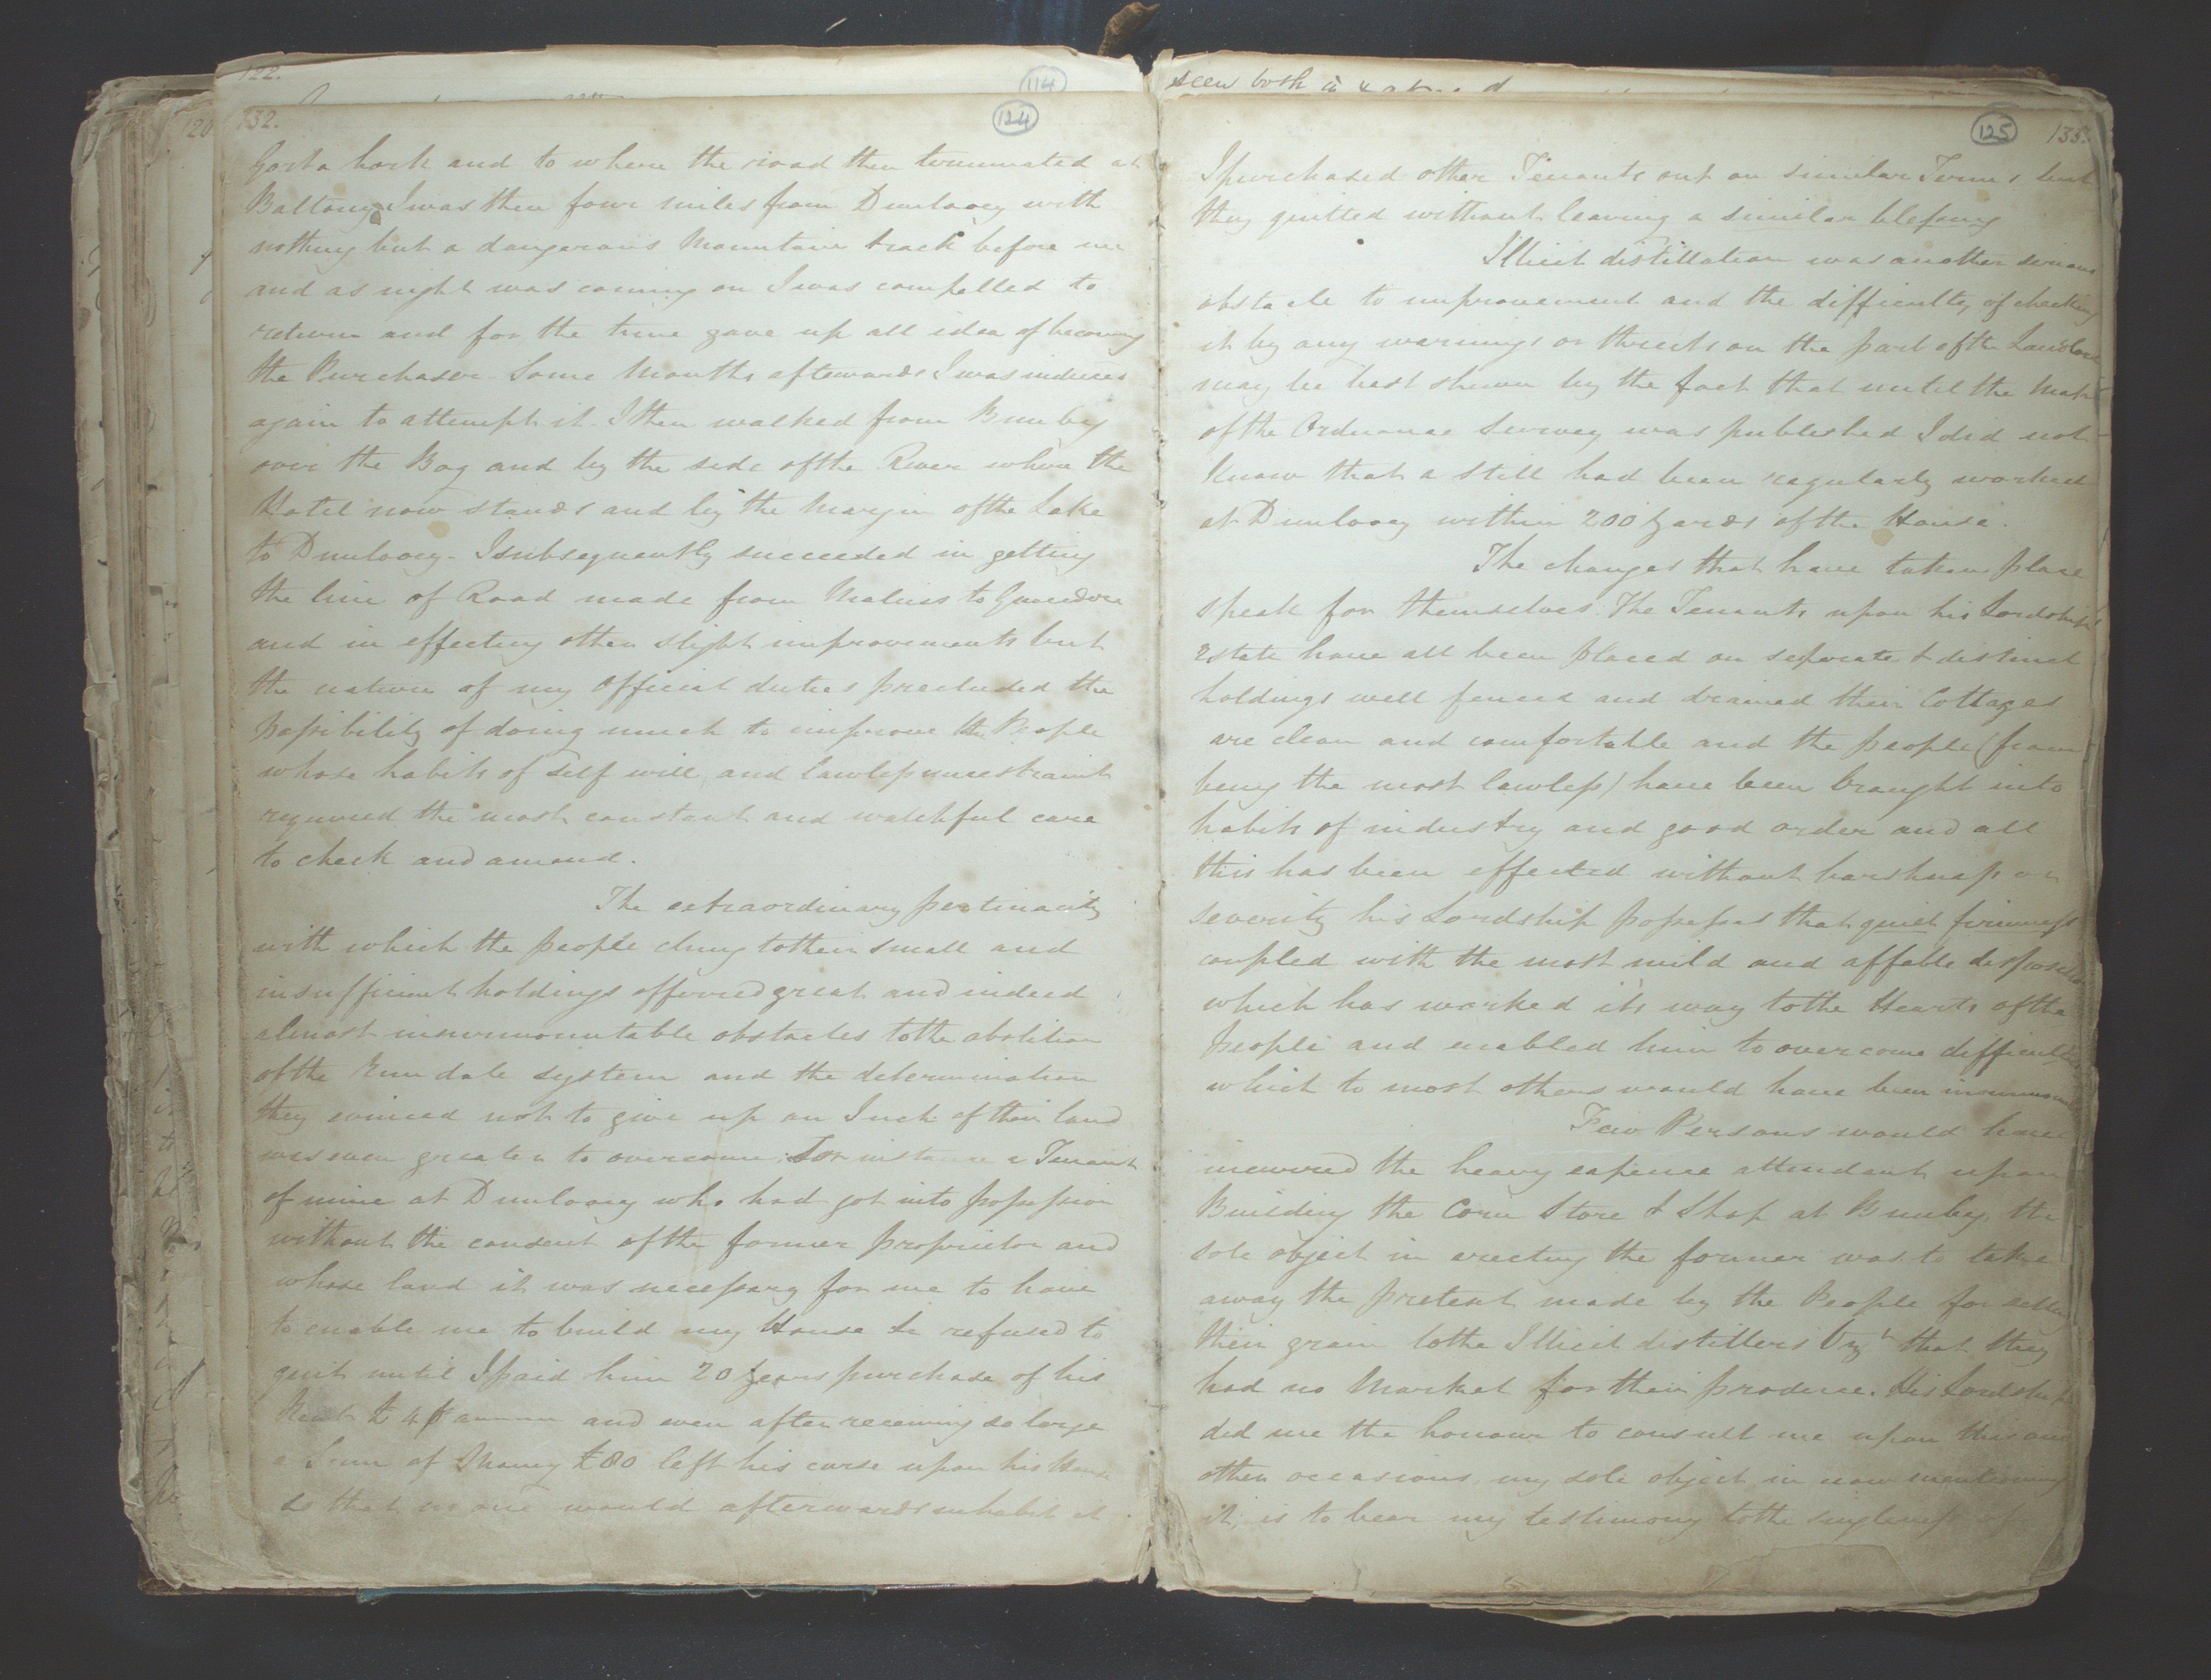 122.
114
132.
124
Gorta hork and to where the road then terminated at
Baltony I was then four miles from Dunlooey with
nothing but a dangerous Mountain track before me
and as night was coming on I was compelled to
return and for the time gave up all idea of becoming
the Purchaser Some Months afterwards I was induced
again to attempt it. I then walked from Bunbeg
over the Bog and by the side of the River where the
Hotel now stands and by the Margin of the Lake
to Dunlooey. I subsequently succeeded in getting
the line of Road made from Meenacs to Gweedore
and in effecting other slight improvements but
the nature of my Official duties precluded the
possibility of doing much to improve the People
whose habits of self will and lawless unrestraint
required the most constant and watchful care
to check and amend.
The extraordinary pertinacity
with which the people clung to their small and
insufficient holdings offerred great and indeed
almost insurmountable obstacles to the abolition
of the Rundale system and the determination
they evinced not to give up an Inch of their land
was even greater to overcome. For instance a Tenant
of mine at Dunlooey who had got into possession
without the consent of the former proprietor and
whose land it was necessary for me to have
to enable me to build my House he refused to
quit until I paid him 20 years purchase of his
Rent £4 ⅌ annum and even after receiving so large
a Sum of Money £80 left his curse upon his House
so that no one would afterwards inhabit it
seen both
125
133.
I purchased other Tenants out on similar Terms but
they quitted without leaving a similar blessing
Illicit distillation was another serious
obstacle to improvement and the difficulty of checking
it by any warnings or threats on the part of the Landlord
may be best shewn by the fact that until the Map
of the Ordnance Survey was published I did not
Know that a still had been regularly worked
at Dunlooey within 200 yards of the House.
The changes that have taken place
speak for themselves. The Tenants upon his Lordships
Estate have all been placed on seperate & distinct
holdings well fenced and drained their Cottages
are clean and comfortable and the people (from
being the most lawless) have been brought into
habits of industry and good order and all
this has been effected without harshness or
severity his Lordship possesses that quiet firmness
coupled with the most mild and affable disposition
which has worked its way to the Hearts of the
People and enabled him to overcome difficulties
which to most others would have been
Few Persons would have
incurred the heavy expence attendant upon
Building the Corn Store & Shop at Bunbeg the
sole object in erecting the former was to take
away the pretext made by the People for selling
their grain to the Illicit distillers Vizt that they
had no Market for their produce. His Lordship
did me the honour to consult me upon this and
other occasions, my sole object in now mentioning
it, is to bear my testimony to the singleness of